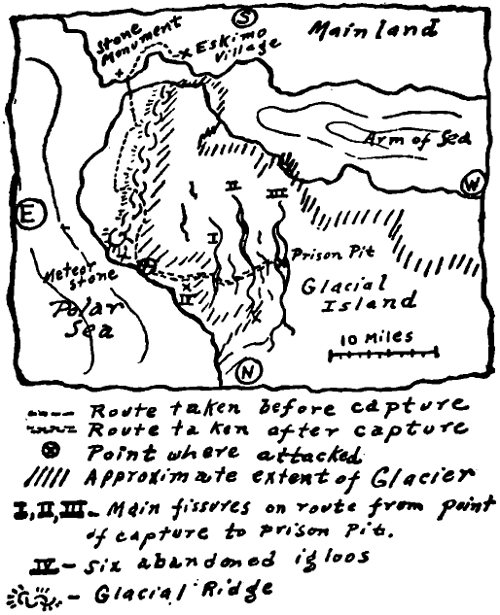 S
Stone
Monument
Eskimo
Village
Mainland
Arm of Sea
W
E
II
III
I
Prison Pit
Meteor
stone
Glacial
Island
Polar
Sea
IV
10 Miles
N
Route taken before capture
Route taken after capture
Point where attacked
Approximate extent of Glacier
I, II, III - Main fissures on route from point
of capture to prison Pit.
IV - Six abandoned igloos
- Glacial Ridge